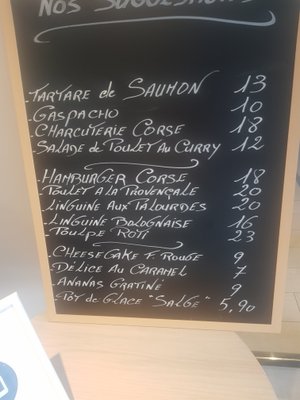 NOS SUGGESTIONS
-TARTARE de SAUMON 13
-GASPACHO 10
-CHARCUTERIE CORSE 18
-SALADE de POULET AU CURRY 12
-HAMBURGER CORSE 18
-POULET A LA PROVENÇALE 20
-LINGUINE AUX PALOURDES 20
-LINGUINE BOLOGNAISE 16
-POULPE ROTI 23
-CHEESECAKE F. ROUGE 9
-DÉLICE AU CARAMEL 7
-ANANAS GRATINÉ 9
-POT de GLACE "SALGE" 5,90